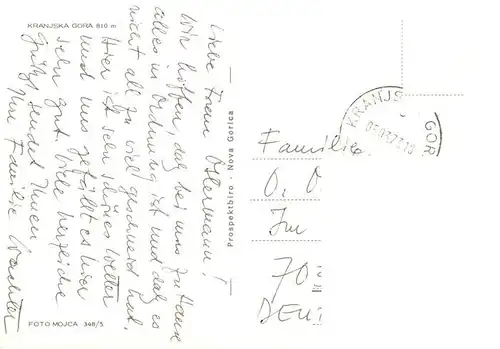 KRANJSKA GORA 810 m
Liebe Frau Ostermann!
Wir hoffen, daß bei uns zu Hause
alles in Ordnung ist und daß es
nicht all zu viel geschneit hat.
Hier ist sehr schönes Wetter
und uns gefällt es hier
sehr gut. Viele herzliche
Grüße sendet Ihnen
Ihre Familie Wachter
FOTO MOJCA 346/5
Prospektbiro - Nova Gorica
KRANJS
GOR
Familie
O. O
Im
70
DEUT